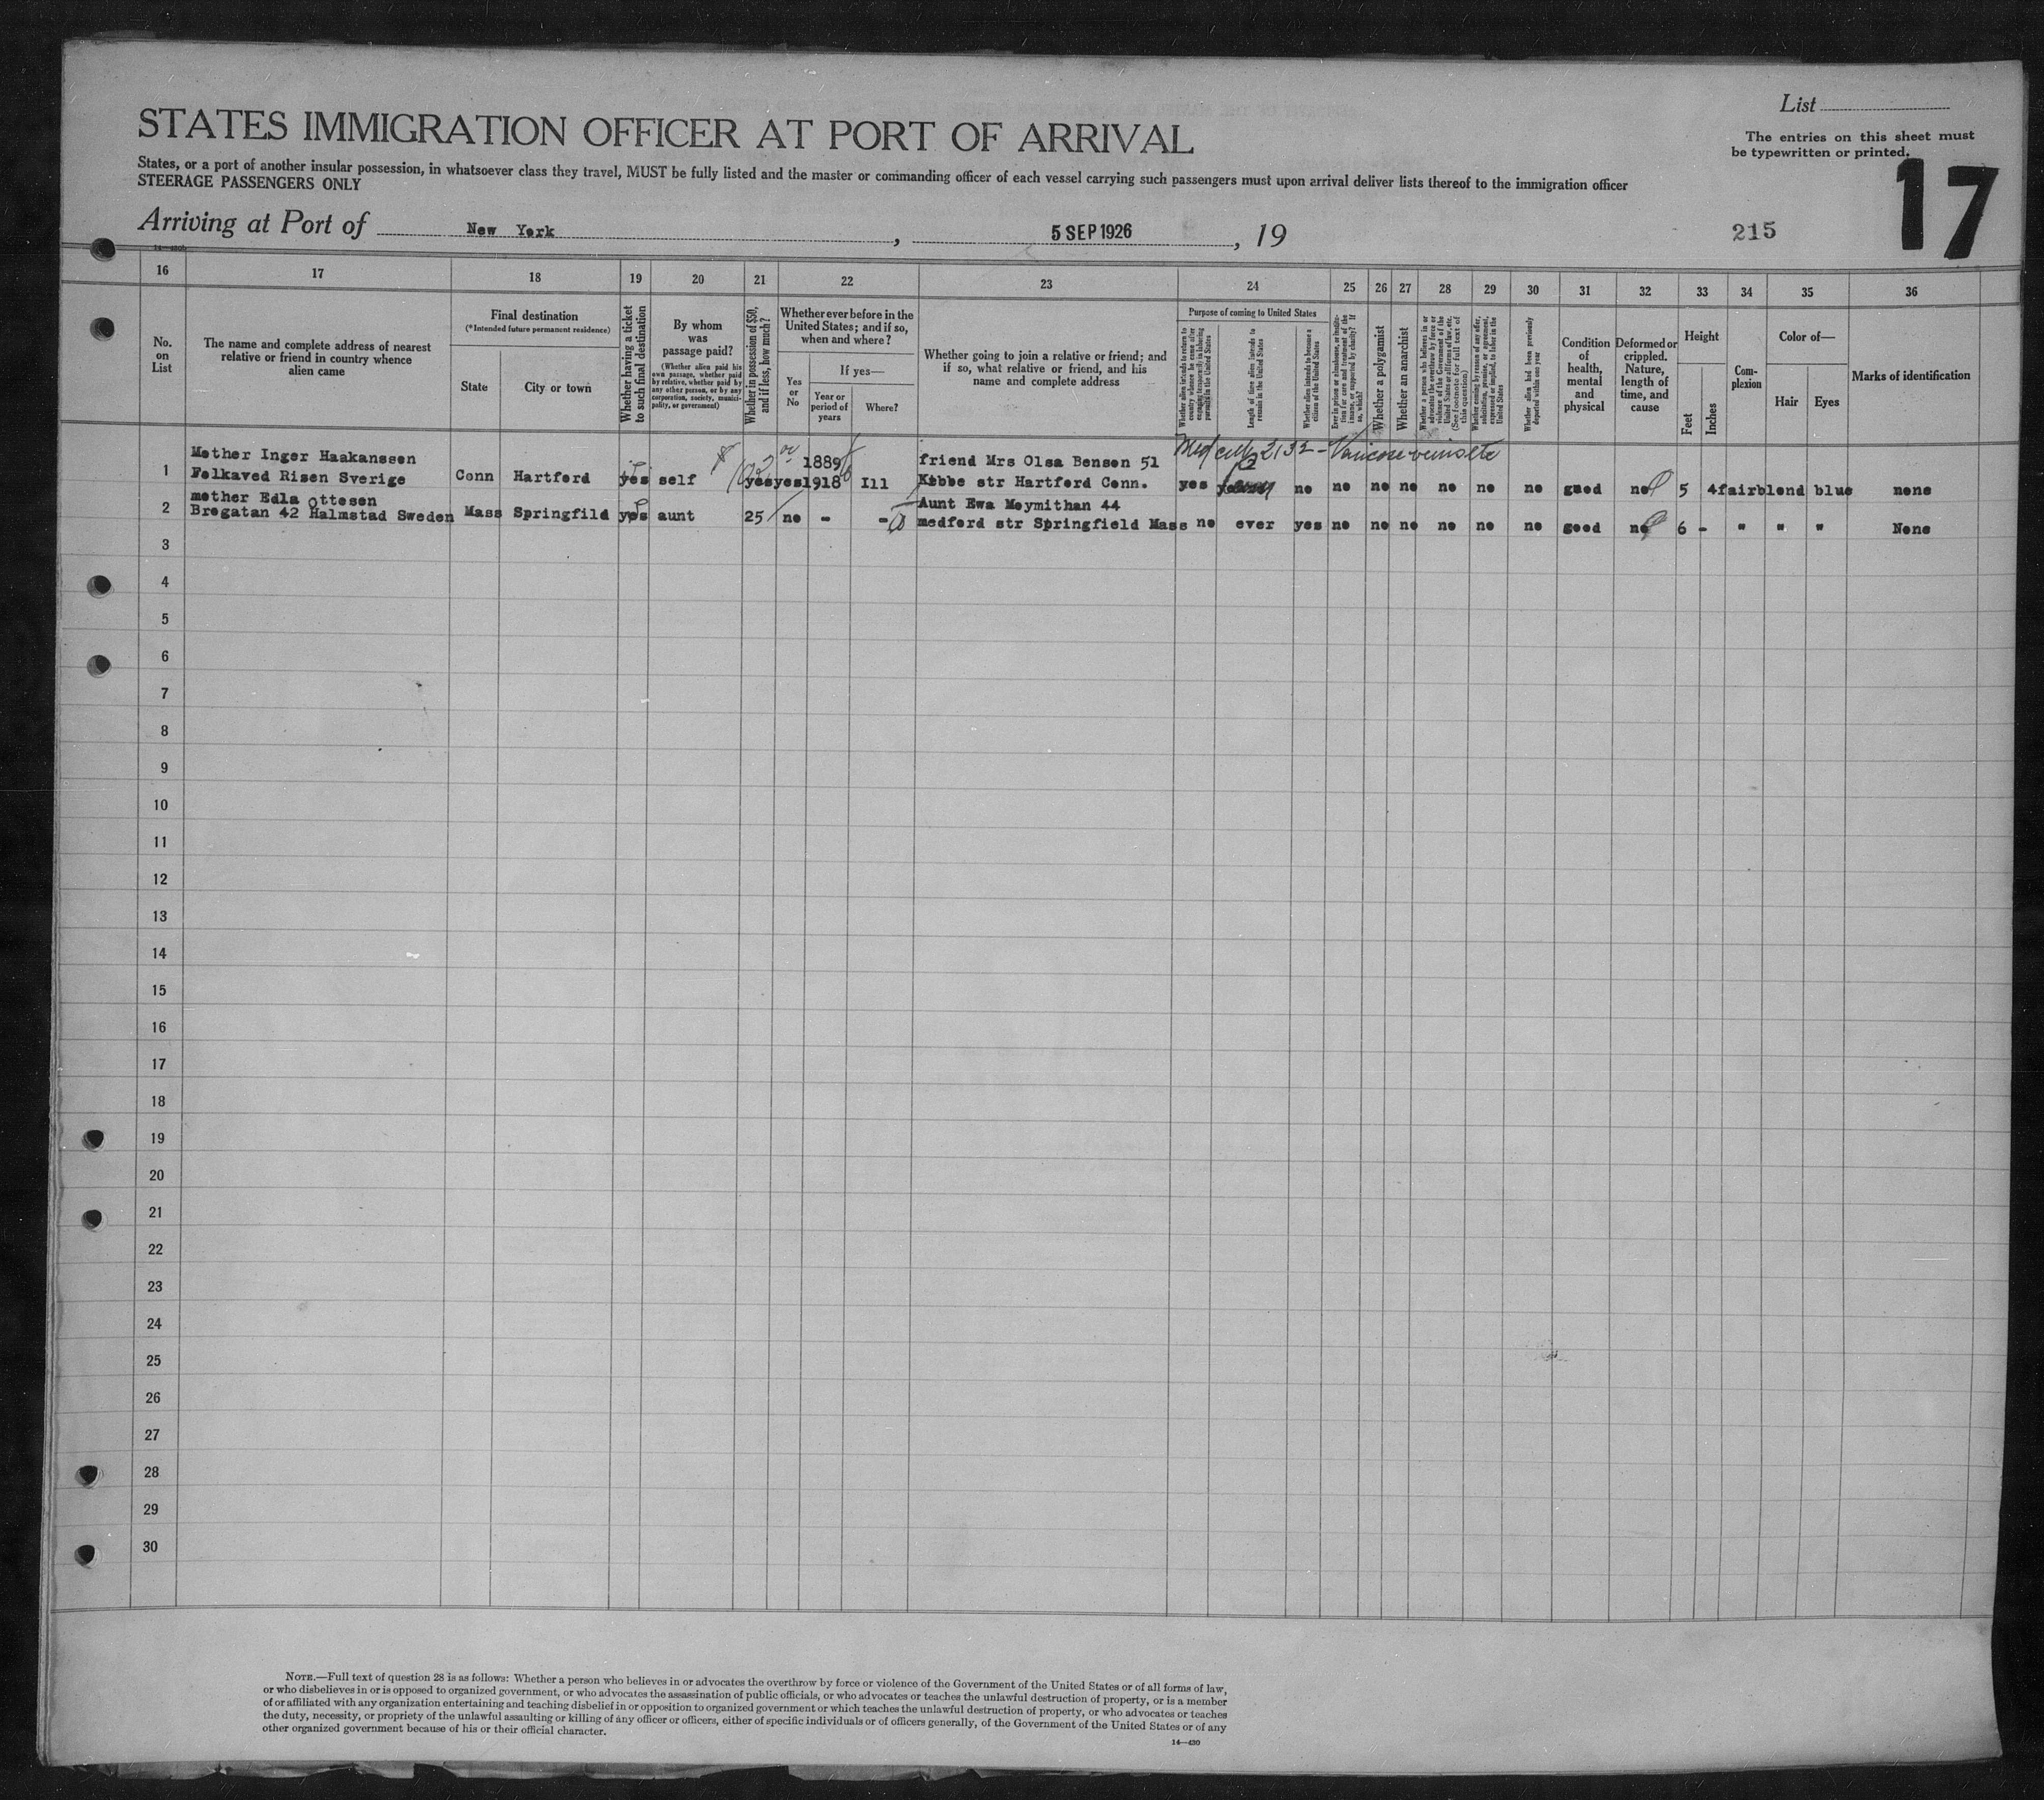 List
The entries on this sheet must
be typewritten or printed.
STATES IMMIGRATION OFFICER AT PORT OF ARRIVAL
17
States, or a port of another insular possession, in whatsoever class they travel, MUST be fully listed and the master or commanding officer of each vessel carrying such passengers must upon arrival deliver lists thereof to the immigration officer
STEERAGE PASSENGERS ONLY
Arriving at Port of New York, 5 SEP 1926, 19
215
16 17 18 19 20 21 22 23 24 25 26 27 28 29 30 31 32 33 34 35 36
No.
on
List
The name and complete address of nearest
relative or friend in country whence
alien came
Final destination
(*Intended future permanent residence)
State
City or town
Whether having a ticket
to such final destination
By whom
was
passage paid?
(Whether alien paid his
own passage, whether paid
by relative, whether paid by
any other person, or by any
corporation, society, munici-
pality, or government)
Whether in possession of $50,
and if less, how much?
Whether ever before in the
United States; and if so,
when and where?
Yes
or
No
If yes—
Year or
period of
years
Where?
Whether going to join a relative or friend; and
if so, what relative or friend, and his
name and complete address
Purpose of coming to United States
Whether alien intends to return to
country whence he came after
engaging temporarily in laboring
pursuits in the United States
Length of time alien intends to
remain in the United States
Whether alien intends to become a
citizen of the United States
Ever in prison or almshouse, or institu-
tion for care and treatment of the
insane, or supported by charity? If
so, which?
Whether a polygamist
Whether an anarchist
Whether a person who believes in or
advocates the overthrow by force or
violence of the Government of the
United States or all forms of law, etc.
(See footnote for full text of
this question)
Whether coming by reason of any offer,
solicitation, promise, or agreement,
expressed or implied, to labor in the
United States
Whether alien had been previously
deported within one year
Condition
of
health,
mental
and
physical
Deformed or
crippled.
Nature,
length of
time, and
cause
Height
Feet
Inches
Com-
plexion
Color of—
Hair
Eyes
Marks of identification
Med cert 2132 - Varicose veins etc
Mother Inger Haakanssen 1889 friend Mrs Olsa Bensen 51
1 Felkaved Risen Sverige Conn Hartford yes self yes yes 1918 Ill Kibbe str Hartford Conn. yes no no no no no no no good no 5 4 fair blond blue none
mother Edla Ottesen Aunt Ewa Meymithan 44
2 Bregatan 42 Halmstad Sweden Mass Springfild yes aunt 25 no - - medford str Springfield Mass no ever yes no no no no no no good no 6 - " " " None
3
4
5
6
7
8
9
10
11
12
13
14
15
16
17
18
19
20
21
22
23
24
25
26
27
28
29
30
NOTE.—Full text of question 28 is as follows: Whether a person who believes in or advocates the overthrow by force or violence of the Government of the United States or of all forms of law,
or who disbelieves in or is opposed to organized government, or who advocates the assassination of public officials, or who advocates or teaches the unlawful destruction of property, or is a member
of or affiliated with any organization entertaining and teaching disbelief in or opposition to organized government or which teaches the unlawful destruction of property, or who advocates or teaches
the duty, necessity, or propriety of the unlawful assaulting or killing of any officer or officers, either of specific individuals or of officers generally, of the Government of the United States or of any
other organized government because of his or their official character.
14—430